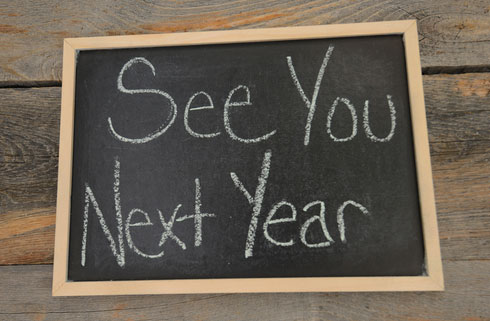 See You
Next Year